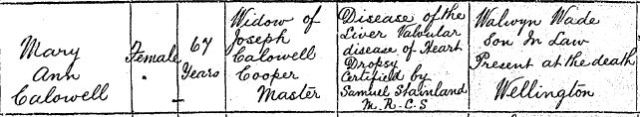 Mary
Ann
Calowell
Female
67
Years
Widow of
Joseph
Calowell
Cooper
Master
Disease of the
Liver Valvular
disease of Heart
Dropsy
Certified by
Samuel Stainland
M.R.C.S
Walwyn Wade
Son In Law
Present at the death
Wellington